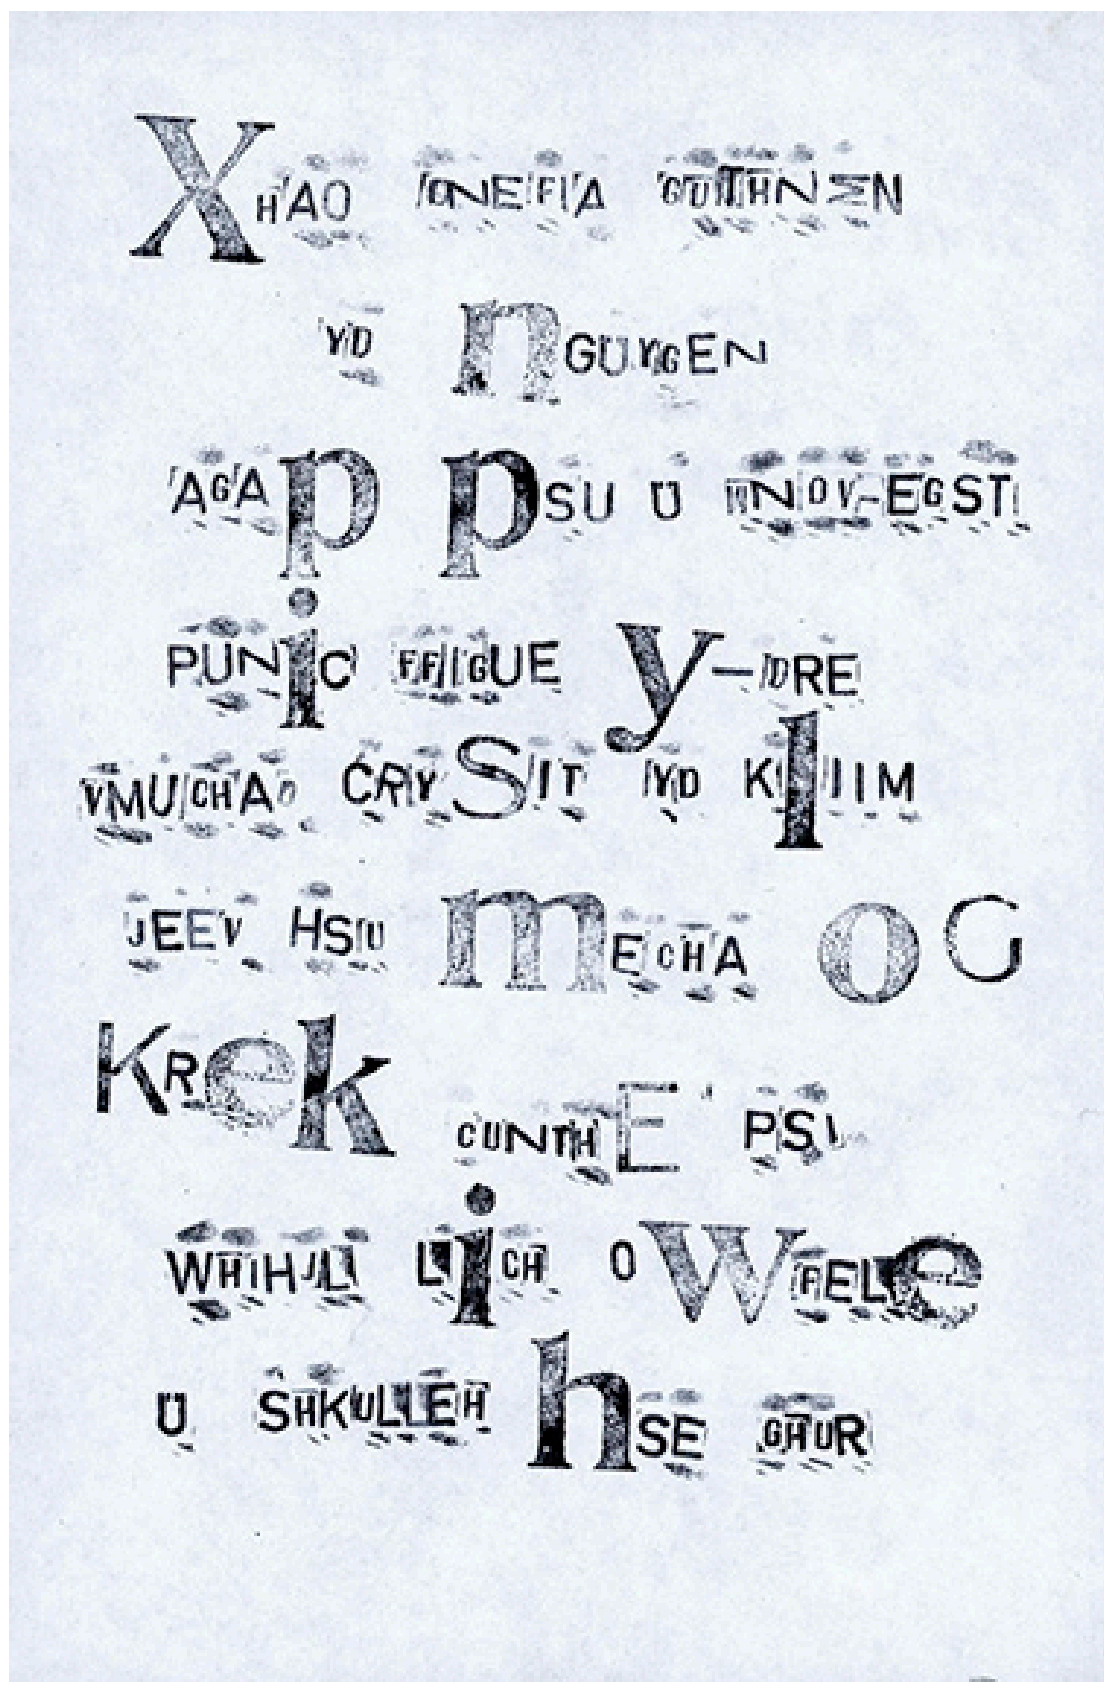 XHAO IONEFIA GUTHNEN
YD nGUYGEN
AGAp pSU U INOV-EGST
PUNiC FFIGUE y-IDRE
VMUCHAO CRYSIT YD KlIIM
JEEV HSIU mECHA o G
KRek CUNTHE' PSI
LiCH OWFELe
U SHKULLEH hSE GHUR